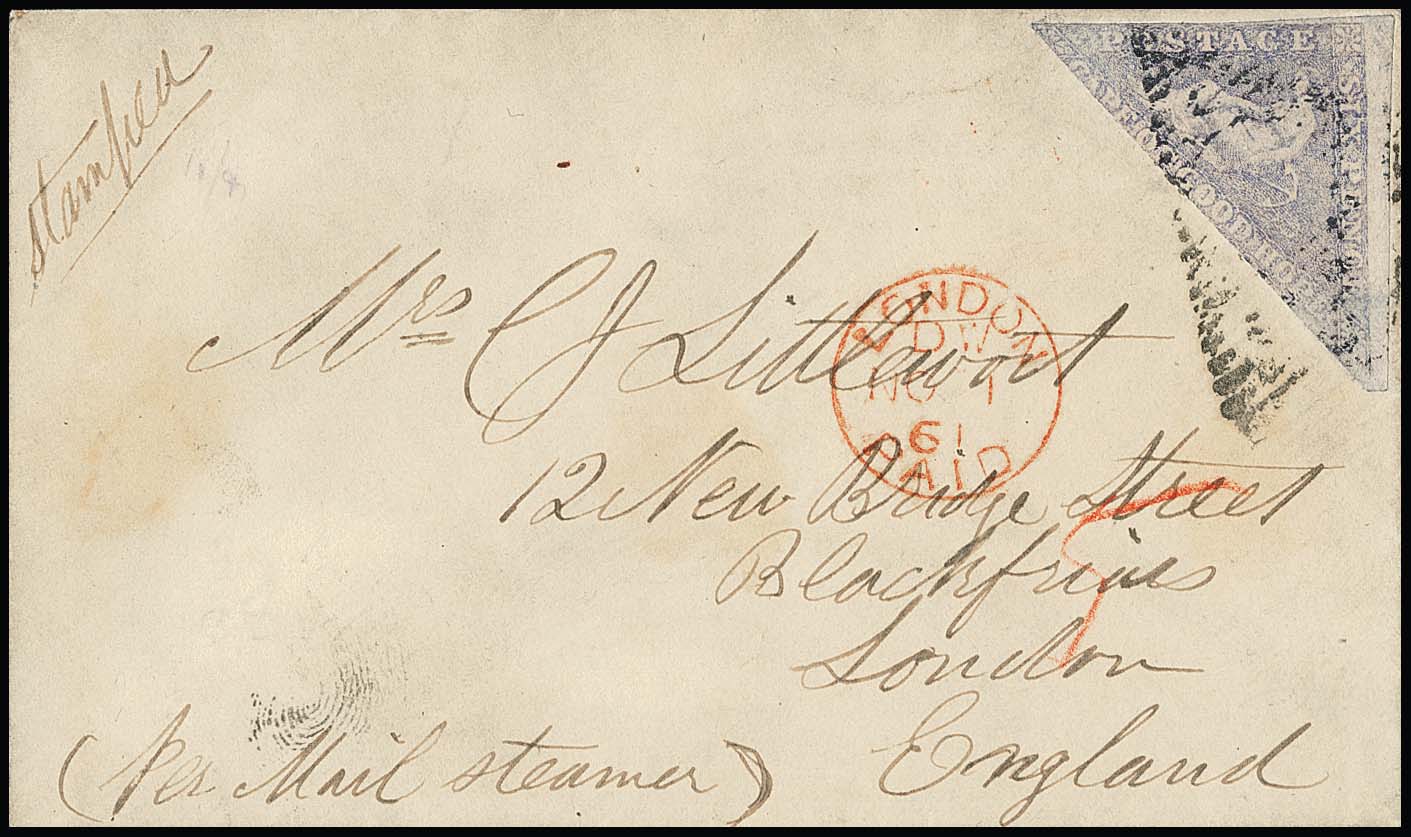 stamped
POSTAGE
SIX PENCE
CAPE OF GOOD HOPE
Mrs C J Littlewort
LONDON
DW
NO 1
61
PAID
12 New Bridge Street
Blackfriars
London
England
(Per Mail steamer)